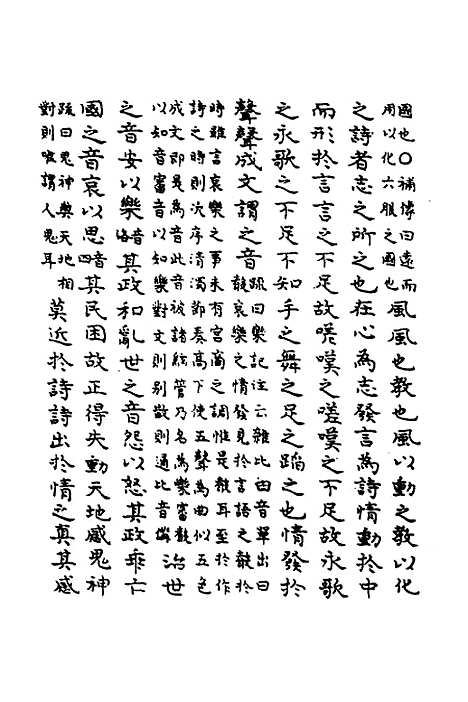 國也〇補傳曰遠而
用以化六服之國也
風風也教也風以動之教以化
之詩者志之所之也在心為志發言為詩情動扵中
而形扵言言之不足故嗟嘆之嗟嘆之不足故永歌
之永歌之不足不知手之舞之足之蹈之也情發扵
聲聲成文謂之音
䟽曰樂記注云雜比曰音單出曰
聲哀樂之情發見扵言語之聲扵
時雖言哀樂之事未有宮商之調惟是聲耳至扵作
詩之時則次序清濁節奏高下使五聲為曲似五色
成文即是為音此音被諸絃管乃名為樂審聲
以知音審音以知樂對文則別散則通比音
治世
之音安以樂音洛其政和亂世之音怨以怒其政乖亡
國之音哀以思音四其民困故正得失動天地感鬼神
䟽曰鬼神與天地相
對則唯謂人鬼耳
莫近扵詩詩出扵情之真其感